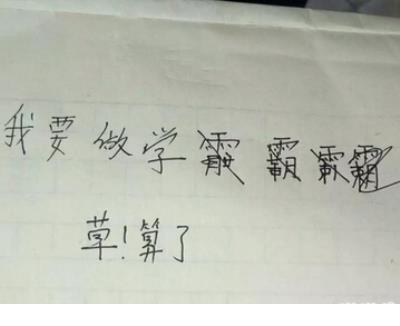 我要做学霸
草！算了